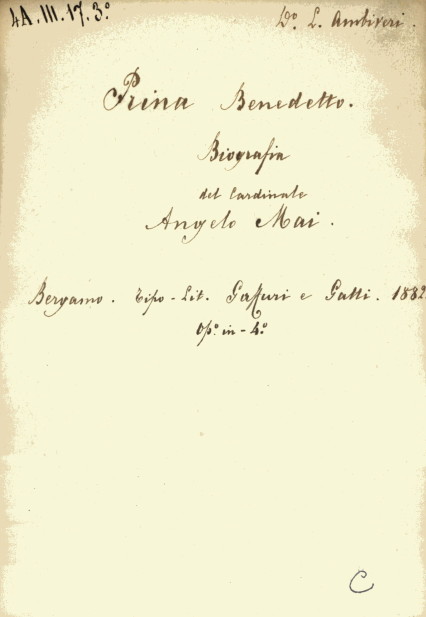 4A.III.17.3º
Dº. L. Ambiveri.
Prina Benedetto.
Biografia
del Cardinale
Angelo Mai.
Bergamo. Tipo-Lit. Gaffuri e Gatti. 1882
Opº. in-4º
C